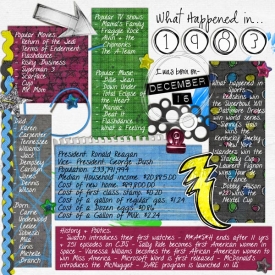 What Happened in...
1983
I was born on...
DECEMBER
16
Popular Movies
Return of the Jedi
Terms of Endearment
Flashdance
Risky Business
Superman 3
Scarface
Cujo
Mr Mom
Popular TV shows
Mama's Family
Fraggle Rock
Webster
Chipmunks
The A-Team
Popular Music
Billie Jean
Down Under
Total Eclipse of
the Heart
Maniac
Beat It
Flashdance
What a Feeling
What Happened in
Sports
win Superbowl XVII
Baltimore Orioles
win world series
wins the
Kentucky
Derby
New York
Islanders win
the Stanley Cup
wins the
Nextel Cup
Died
Karen
Carpenter
Tennessee
Williams
Jack
Dempsey
David
Niven
Dennis
Wilson
Born
Carrie
Underwood
Mila
Kunis
Michelle
President: Ronald Reagan
Vice President: George Bush
Population: 233,791,994
Median Household Income: $20,885.00
Cost of new home: $89,800.00
Cost of first class stamp: $0.20
Cost of a gallon of regular gas: $1.24
Cost of a Dozen eggs: $0.86
Cost of a Gallon of Milk: $2.24
History + Politics:
Swatch introduces their first watches - M*A*S*H ends after 11 yrs
+ 251 episodes on CBS - Sally Ride becomes first American women in
Space - Vanessa Williams becomes the first African American women to
win Miss America - Microsoft Word is first released - McDonald's
introduces the McNugget - DARE program is launched in